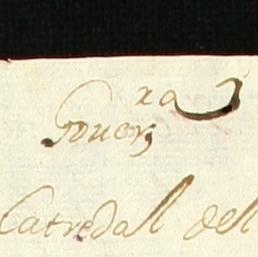 xa
Gouer
Catredal del